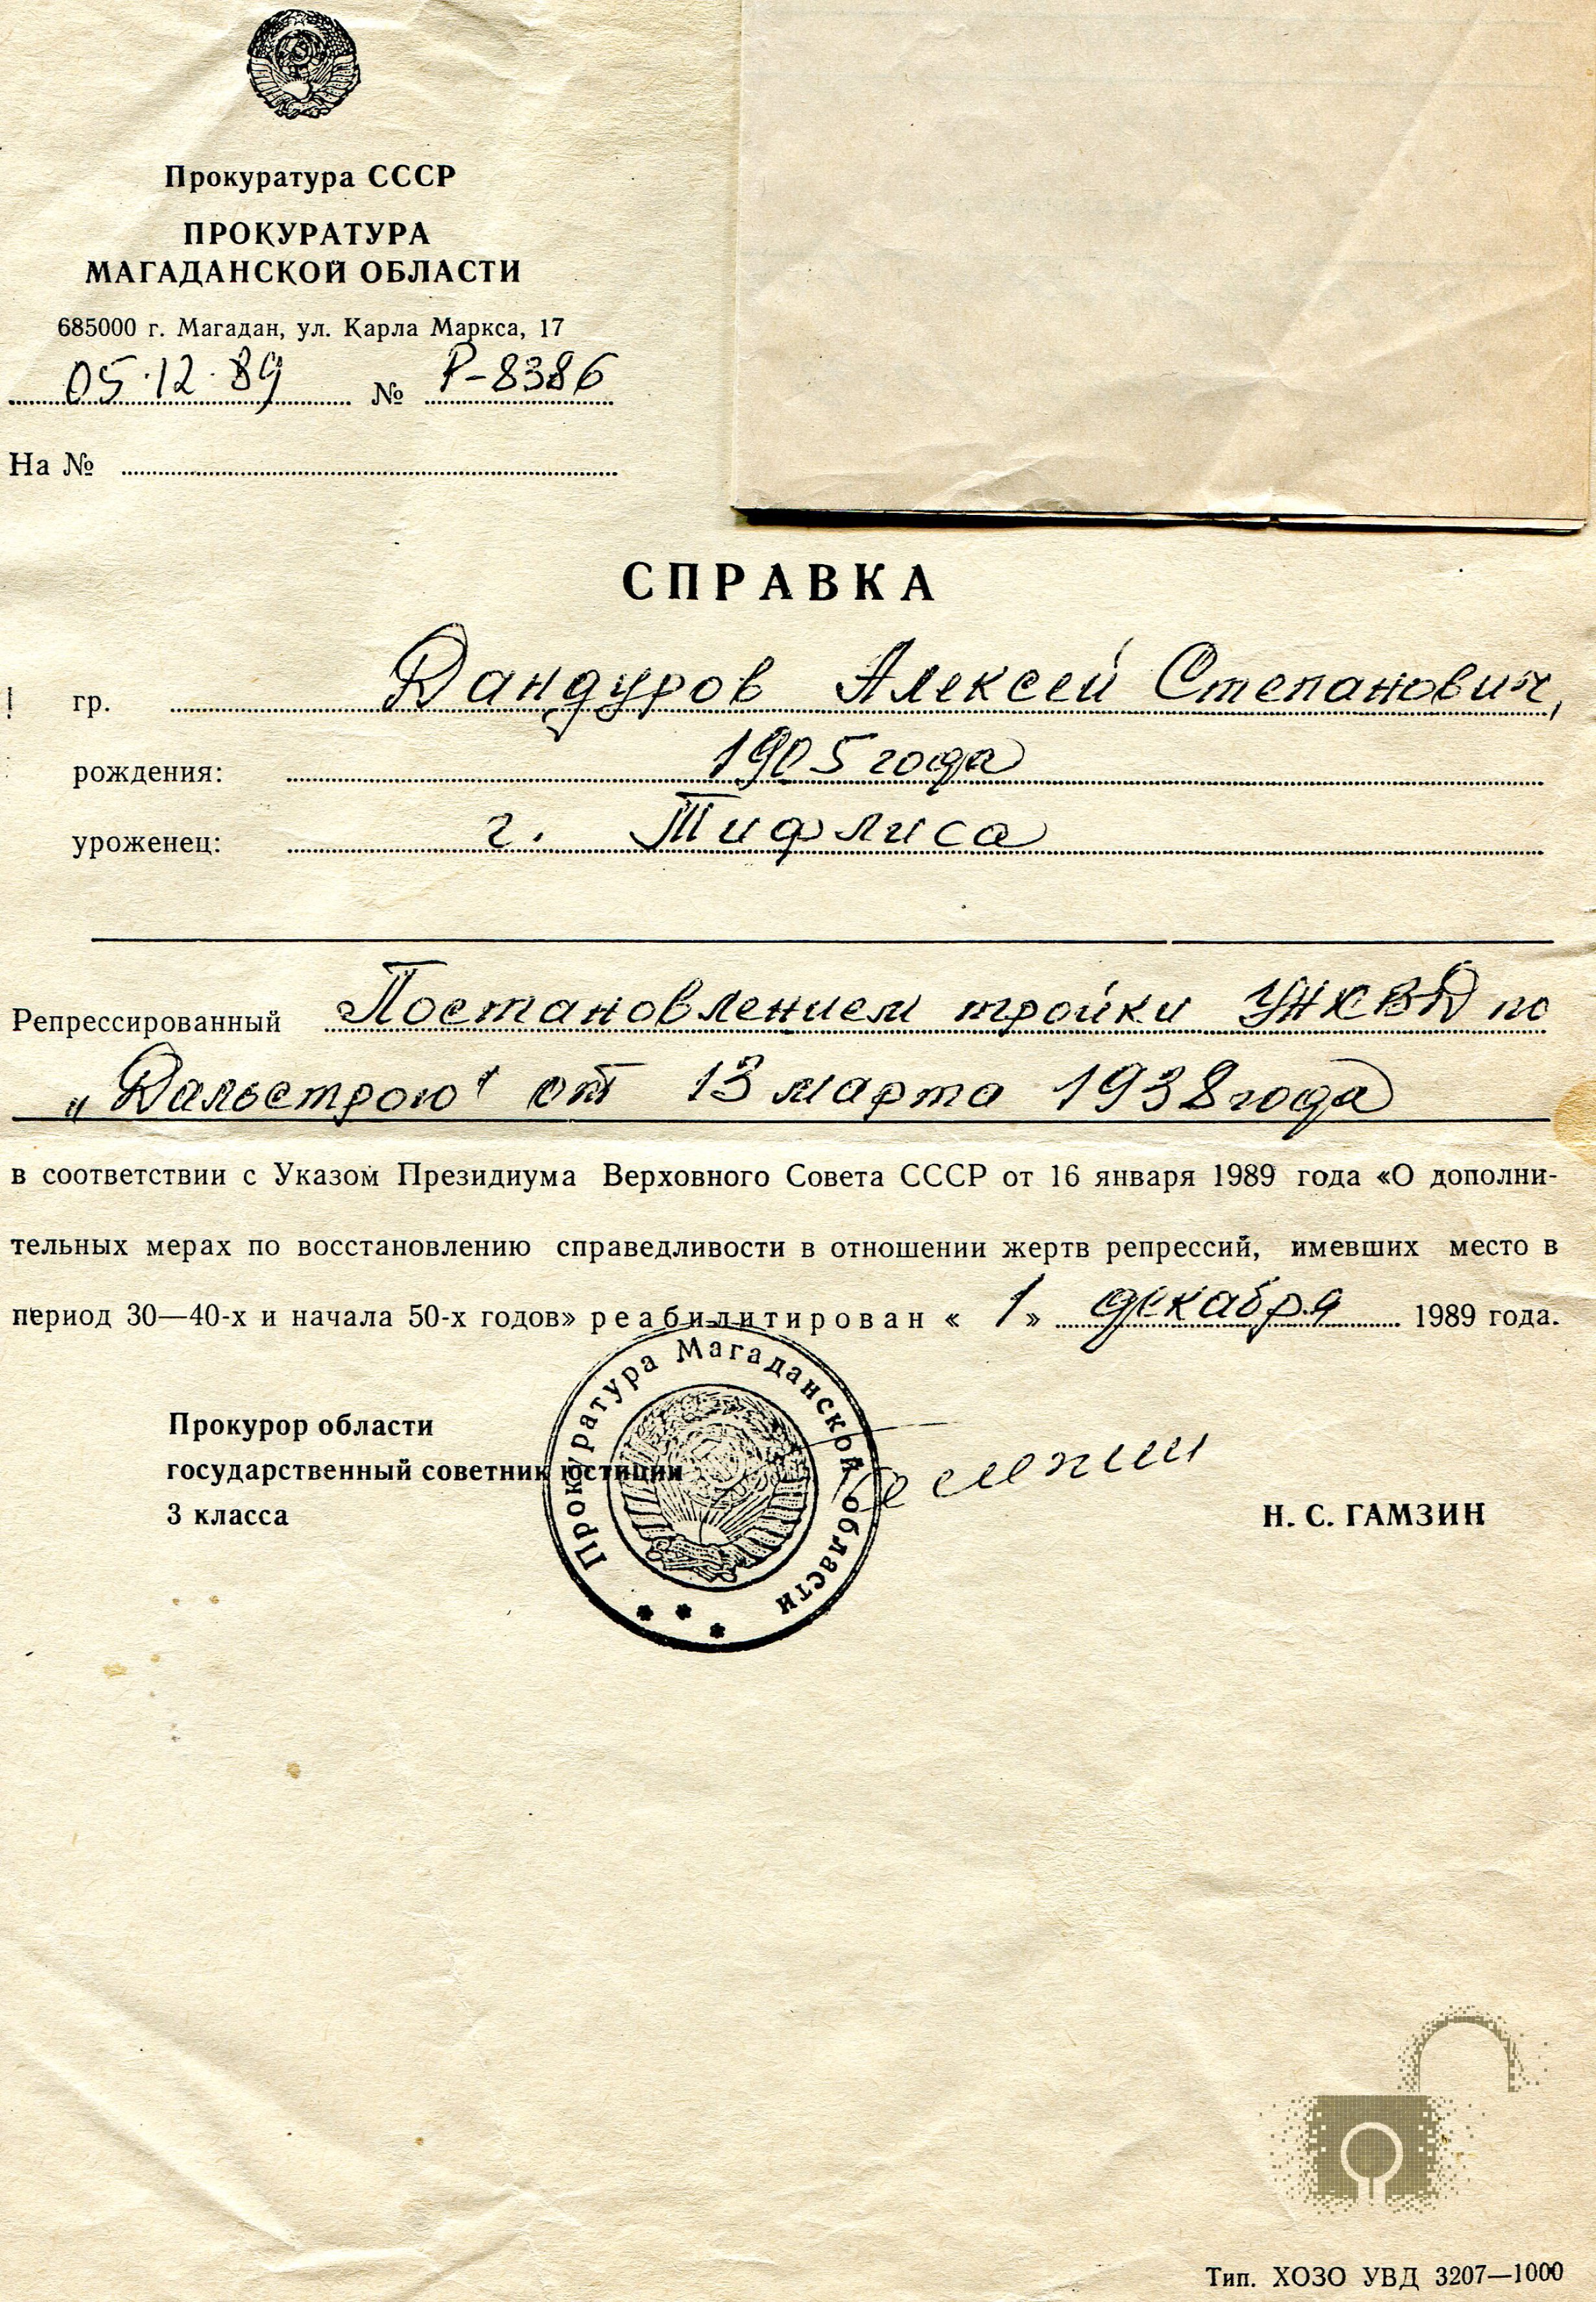 Прокуратура СССР
ПРОКУРАТУРА
МАГАДАНСКОЙ ОБЛАСТИ
685000 г. Магадан, ул. Карла Маркса, 17
05.12.89 № Р-8386
На №
СПРАВКА
гр. Дандуров Алексей Степанович,
рождения: 1905 года
уроженец: г. Тифлиса
Репрессированный Постановлением тройки УНКВД по
„Дальстрою" от 13 марта 1938 года
в соответствии с Указом Президиума Верховного Совета СССР от 16 января 1989 года «О дополни-
тельных мерах по восстановлению справедливости в отношении жертв репрессий, имевших место в
период 30—40-х и начала 50-х годов» реабилитирован « 1 » декабря 1989 года.
Прокурор области
государственный советник юстиции
3 класса
Н. С. ГАМЗИН
Прокуратура Магаданской области
Тип. ХОЗО УВД 3207—1000